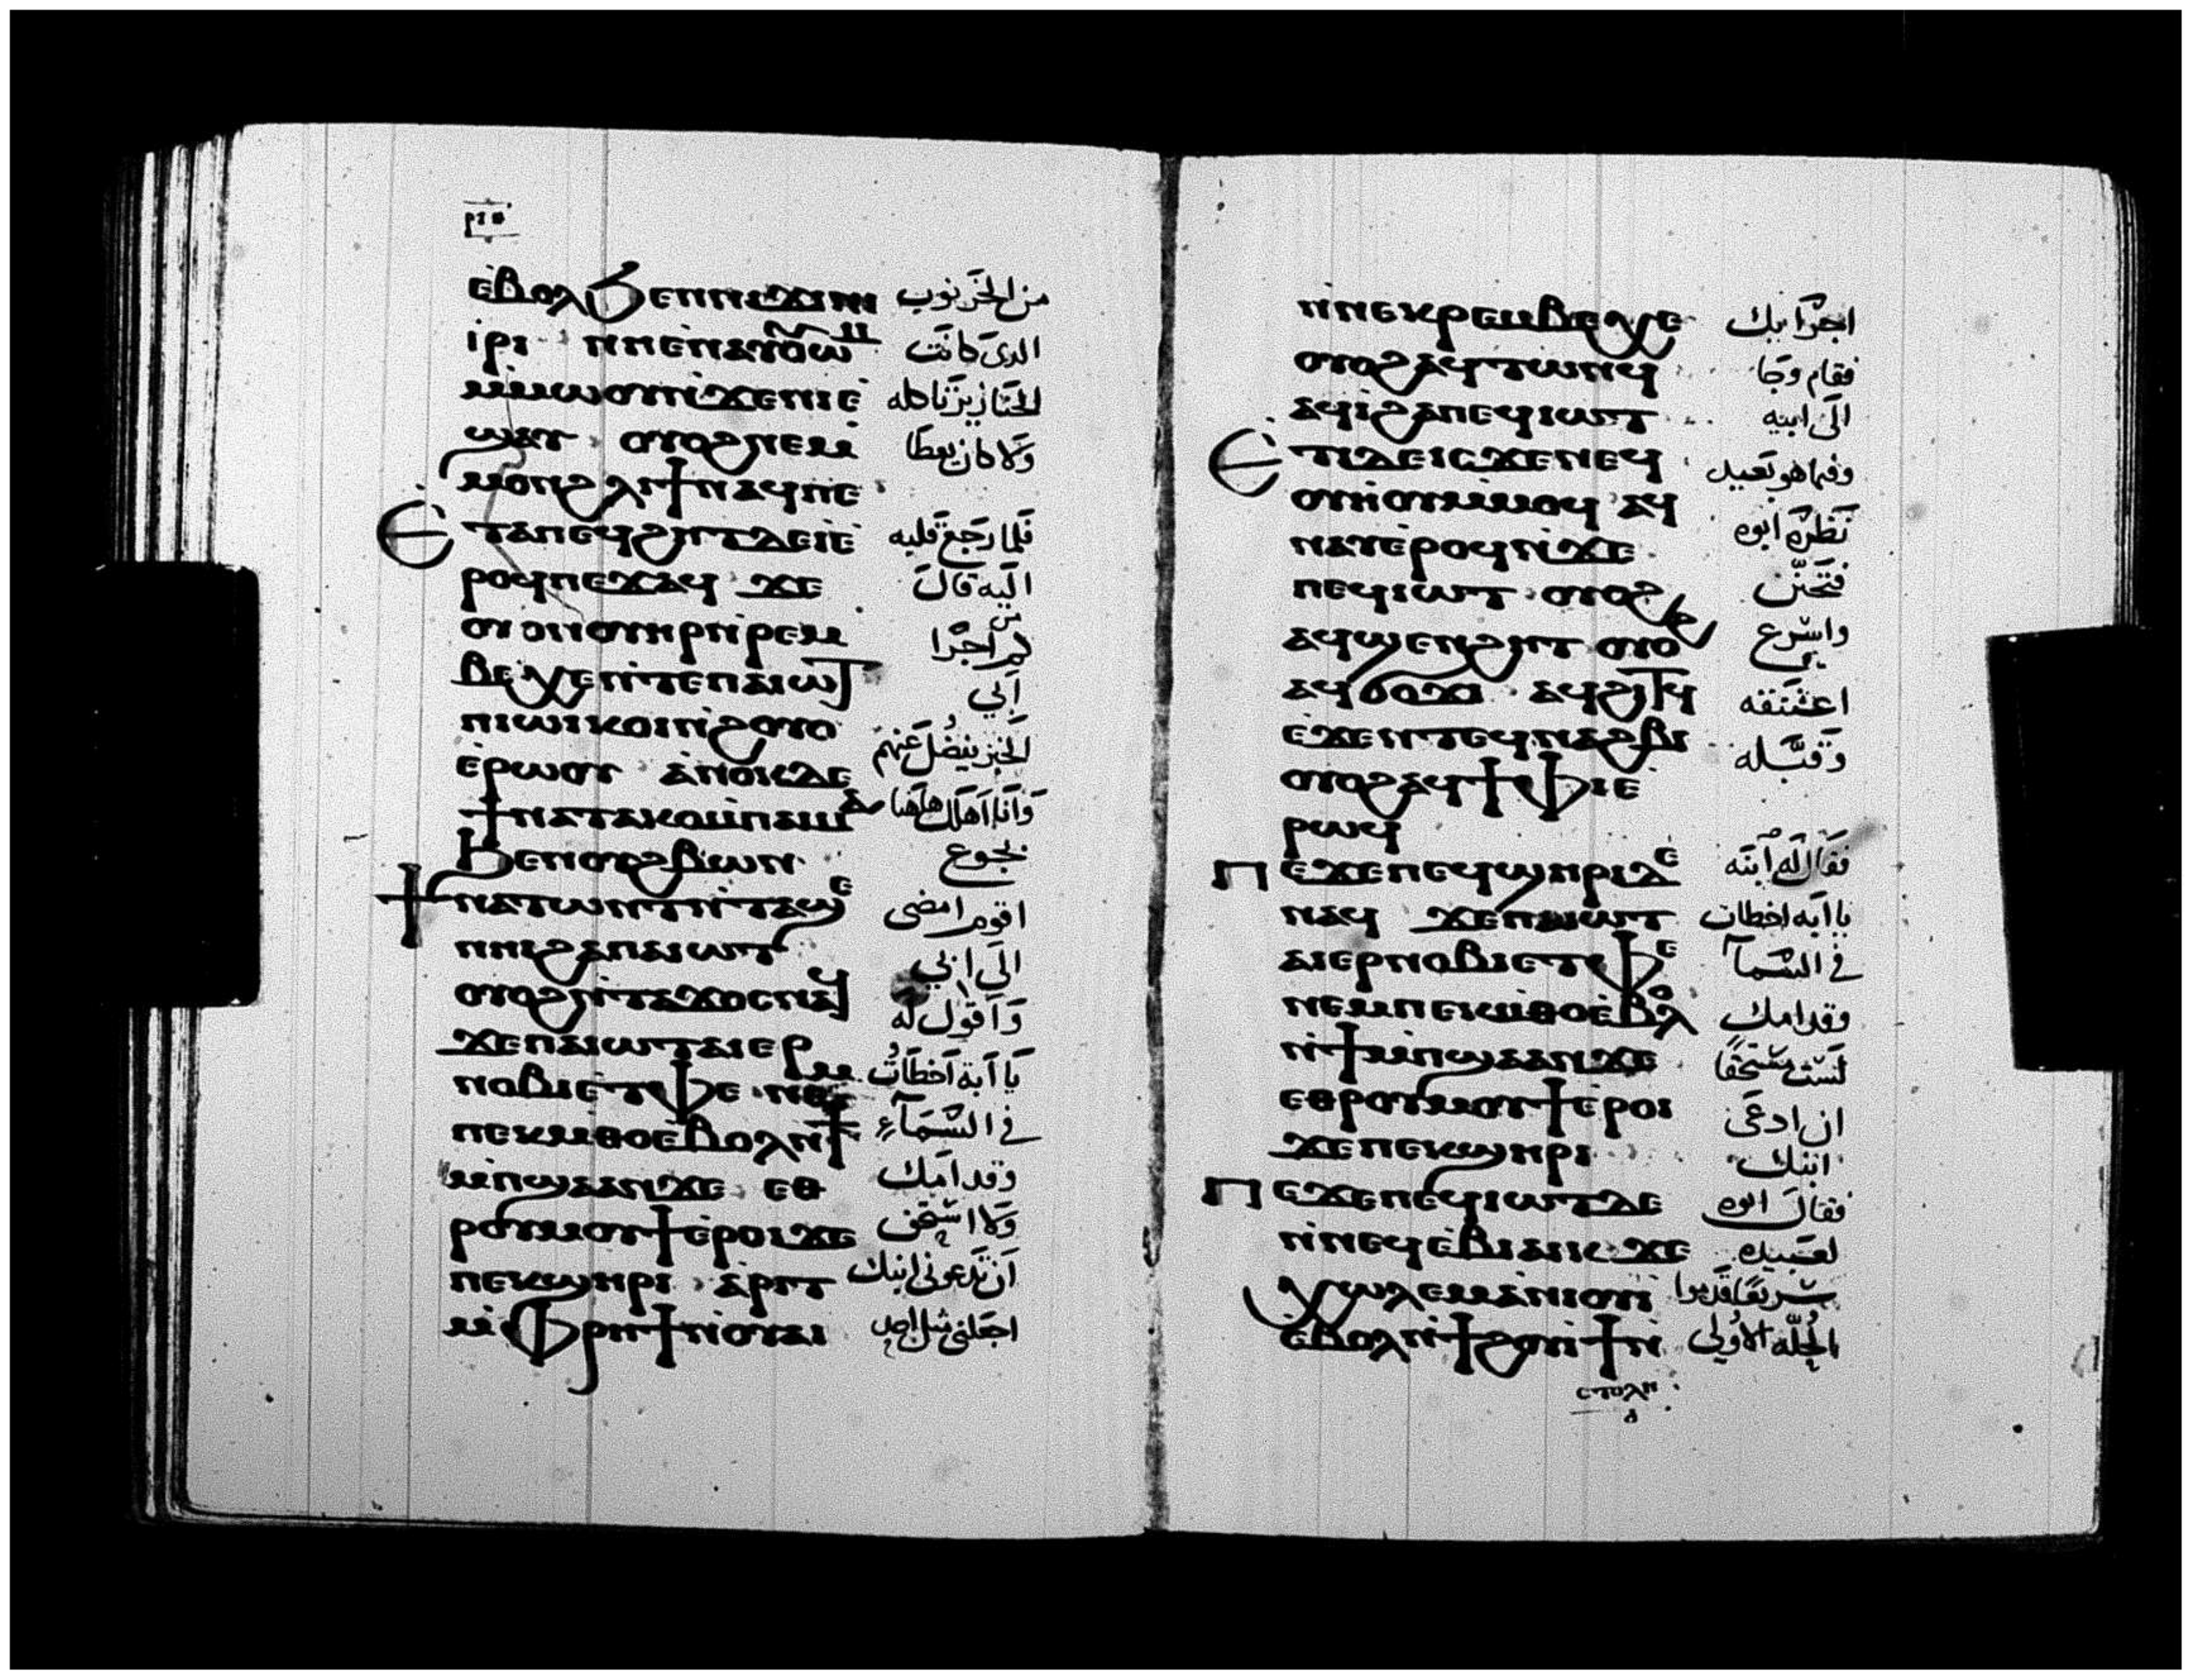 ⲣⲓⲑ
ⲉⲃⲟⲗϧⲉⲛⲛⲓϫⲓⲛⲓ من الخرنوب
ⲓⲣⲓ ⲛⲏⲉⲛⲁⲩⲟⲩⲱⲙ الدى كانت
ⲙⲙⲱⲟⲩⲛϫⲉⲛⲓⲉ الخنازير تاكله
ϣⲁⲩ ⲟⲩⲟϩⲛⲉⲙ ولا كان يعطا
ⲙⲟⲛϩⲗⲓϯⲛⲁϥⲡⲉ
ⲉⲧⲁⲡⲉϥϩⲏⲧⲇⲉⲓⲉ فلما رجع قلبه
ⲣⲟϥⲡⲉϫⲁϥ ϫⲉ اليه قال
ⲟⲩⲟⲛⲟⲩⲏⲣⲛⲣⲉⲙ كم من اجرا
ⲃⲉⲭⲉⲛⲧⲉⲡⲁⲓⲱⲧ ابي
ⲡⲓⲱⲓⲕⲟⲓⲛϩⲟⲩⲟ الخبز يفضل عنهم
ⲉⲣⲱⲟⲩ ⲁⲛⲟⲕⲇⲉ وانا اهلك هاهنا
ϯⲛⲁⲧⲁⲕⲟⲙⲡⲁⲓⲙⲁ
ϧⲉⲛⲟⲩϩⲃⲱⲛ بجوع
ϯⲛⲁⲧⲱⲛⲧⲛⲧⲁϣⲉ اقوم امضى
ⲛⲏⲓϩⲁⲡⲁⲓⲱⲧ الى ابي
ⲟⲩⲟϩⲛⲧⲁϫⲟⲥⲛⲁϥ واقول له
ϫⲉⲡⲁⲓⲱⲧⲁⲓⲉⲣ يا ابة اخطات
ⲛⲟⲃⲓⲉⲧⲫⲉ ⲛⲉⲙ في السماء
ⲡⲉⲕⲙⲑⲟⲉⲃⲟⲗⲛϯ وقدامك
ⲙⲡϣⲁⲁⲛϫⲉ ⲉⲑ ولا استحق
ⲣⲟⲩⲙⲟⲩϯⲉⲣⲟⲓϫⲉ ان تدعونى ابنك
ⲡⲉⲕϣⲏⲣⲓ ⲁⲣⲓⲧ
ⲙⲫⲣⲏϯⲛⲟⲩⲁⲓ اجعلنى مثل احد
ⲛⲛⲉⲕⲣⲉⲙⲃⲉⲭⲉ اجرايك
ⲟⲩⲟϩⲁϥⲧⲱⲛϥ فقام وجا
ⲁϥⲓϩⲁⲡⲉϥⲓⲱⲧ الى ابيه
ⲉⲧⲓⲇⲉⲓⲥϫⲉⲛⲉϥ وفيما هو بعيد
ⲟⲩⲏⲟⲩⲙⲙⲟϥ ⲁϥ نظره ابوه
ⲛⲁⲩⲉⲣⲟϥⲛϫⲉ
ⲡⲉϥⲓⲱⲧ ⲟⲩⲟϩ فتحنن
ⲁϥϣⲉⲛϩⲏⲧ ⲟⲩⲟϩ واسرع
ⲁϥϭⲟϫⲓ ⲁϥϩⲓⲧϥ اعتنقه
ⲉϫⲉⲛⲧⲉϥⲛⲁϩⲃⲓ وقبله
ⲟⲩⲟϩⲁϥϯⲫⲓⲉ
ⲣⲱϥ
ⲡⲉϫⲉⲡⲉϥϣⲏⲣⲓⲇⲉ فقال له ابنه
ⲛⲁϥ ϫⲉⲡⲁⲓⲱⲧ يا ابه اخطات
ⲁⲓⲉⲣⲛⲟⲃⲓⲉⲧⲫⲉ في السمآ
ⲛⲉⲙⲡⲉⲕⲙⲑⲟⲉⲃⲟⲗ وقدامك
ⲛϯⲙⲡϣⲁⲁⲛϫⲉ لست مستحقا
ⲉⲑⲣⲟⲩⲙⲟⲩϯⲉⲣⲟⲓ ان ادعى
ϫⲉⲡⲉⲕϣⲏⲣⲓ ابنك
ⲡⲉϫⲉⲡⲉϥⲓⲱⲧⲇⲉ فقال ابوه
ⲛⲛⲉϥⲉⲃⲓⲁⲓⲕ ϫⲉ لعبيده
ⲭⲱⲗⲉⲙⲁⲛⲓⲟⲩⲓ سريعا قدموا
ⲉⲃⲟⲗⲛϯϩⲟⲩⲓϯⲛ الحلة الاولى
ⲥⲧⲟⲗⲏ